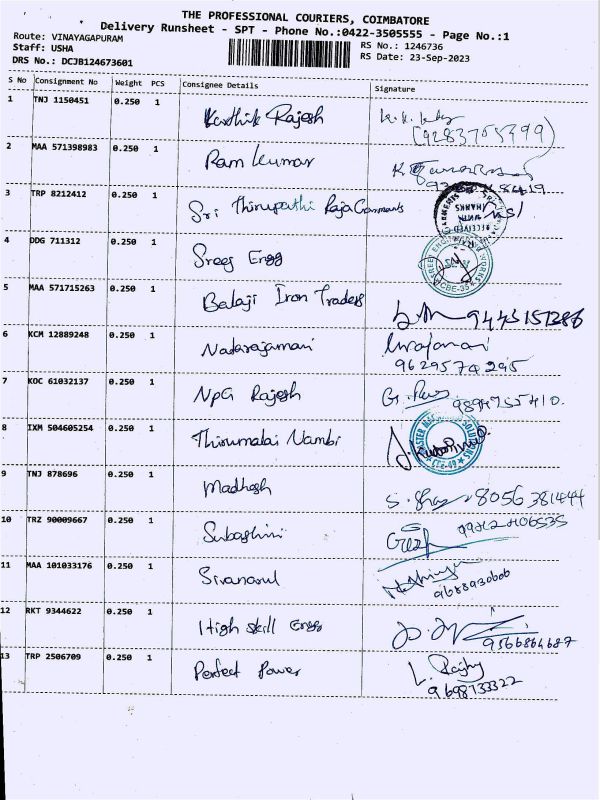 THE PROFESSIONAL COURIERS, COIMBATORE
Delivery Runsheet - SPT - Phone No.:0422-3505555 - Page No.:1
Route: VINAYAGAPURAM
Staff: USHA
RS No.: 1246736
DRS No.: DCJB124673601
RS Date: 23-Sep-2023
S No Consignment No Weight PCS Consignee Details Signature
1 TNJ 1150451 0.250 1 Karthik Rajesh
2 MAA 571398983 0.250 1 Ram kumar
3 TRP 8212412 0.250 1 Sri Thirupathi Raja Garments
RECEIVED WITH THANKS
4 DDG 711312 0.250 1 Sree Engg
CBE-35
5 MAA 571715263 0.250 1 Balaji Iron Traders
9443151386
6 KCM 12889248 0.250 1 Natarajamani
9629574295
7 KOC 61032137 0.250 1 NPG Rajesh
8 IXM 504605254 0.250 1 Thirumalai Nambi
9 TNJ 878696 0.250 1 Madhesh
8056381444
10 TRZ 90009667 0.250 1 Subashini
11 MAA 101033176 0.250 1 Sivanarul
12 RKT 9344622 0.250 1 High skill Engg
9566864687
13 TRP 2506709 0.250 1 Perfect Power
9698133322